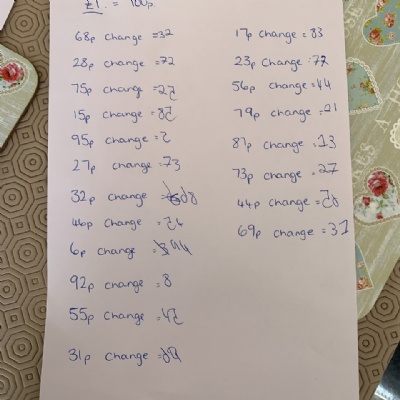 £1. = 100p.
68p change =32
28p change =72
75p change =25
15p change =85
95p change =5
27p change =73
32p change =68
46p change =54
6p change =94
92p change =8
55p change =45
31p change =69
17p change =83
23p change =77
56p change =44
79p change =21
87p change =13
73p change =27
44p change =56
69p change =31